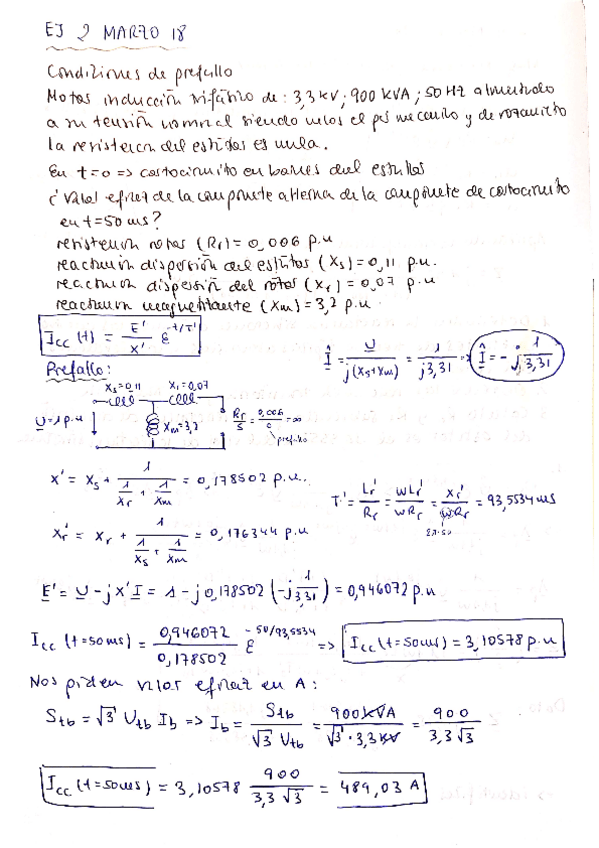 EJ 2 MARZO 18
Condiziones de prefallo
Motor inducción trifásico de: 3,3 kV; 900 KVA; 50 Hz alimentado
a su tensión nominal siendo nulos el par mecánico y de rozamiento
la resistencia del estator es nula.
En t=0 => cortocircuito en bornes del estator
¿Valor eficaz de la componente alterna de la componente de cortocircuito
en t=50 ms?
resistencia rotor (Rr) = 0,006 p.u
reactancia dispersión del estator (Xs) = 0,11 p.u.
reactancia dispersión del rotor (Xr) = 0,07 p.u
reactancia magnetizante (Xm) = 3,2 p.u.
Icc (t) = E'/X' e^(-t/T')
Î = U/(j(Xs+Xm)) = 1/(j3,31) => Î = -j 1/3,31
Prefallo:
Xs=0,11 Xr=0,07
U=1 p.u Xm=3,2 Rr/s = 0,006/0 = ∞
prefallo
X' = Xs + 1/(1/Xr + 1/Xm) = 0,178502 p.u..
Xr' = Xr + 1/(1/Xs + 1/Xm) = 0,176344 p.u
T' = Lr'/Rr = WLr'/WRr = Xr'/WRr = 93,5534 ms
2π·50
E' = U - jX'I = 1 - j 0,178502 (-j 1/3,31) = 0,946072 p.u
Icc (t=50ms) = 0,946072/0,178502 e^(-50/93,5534) => Icc (t=50ms) = 3,10578 p.u
Nos piden valor eficaz en A:
Stb = √3 Utb Ib => Ib = Stb/(√3 Utb) = 900kVA/(√3·3,3kV) = 900/(3,3√3)
Icc (t=50ms) = 3,10578 900/(3,3√3) = 489,03 A